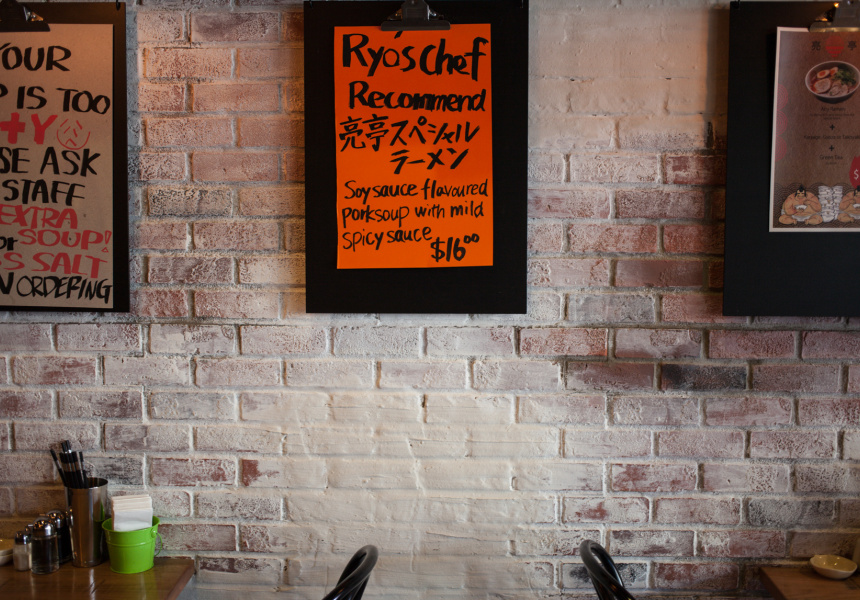 YOUR
P IS TOO
+Y
SE ASK
STAFF
EXTRA
or SOUP!
SS SALT
N ORDERING
Ryo's Chef
Recommend
亮亭スペシャル
ラーメン
Soysauce flavoured
porksoup with mild
spicy sauce
$16.00
亮亭
$